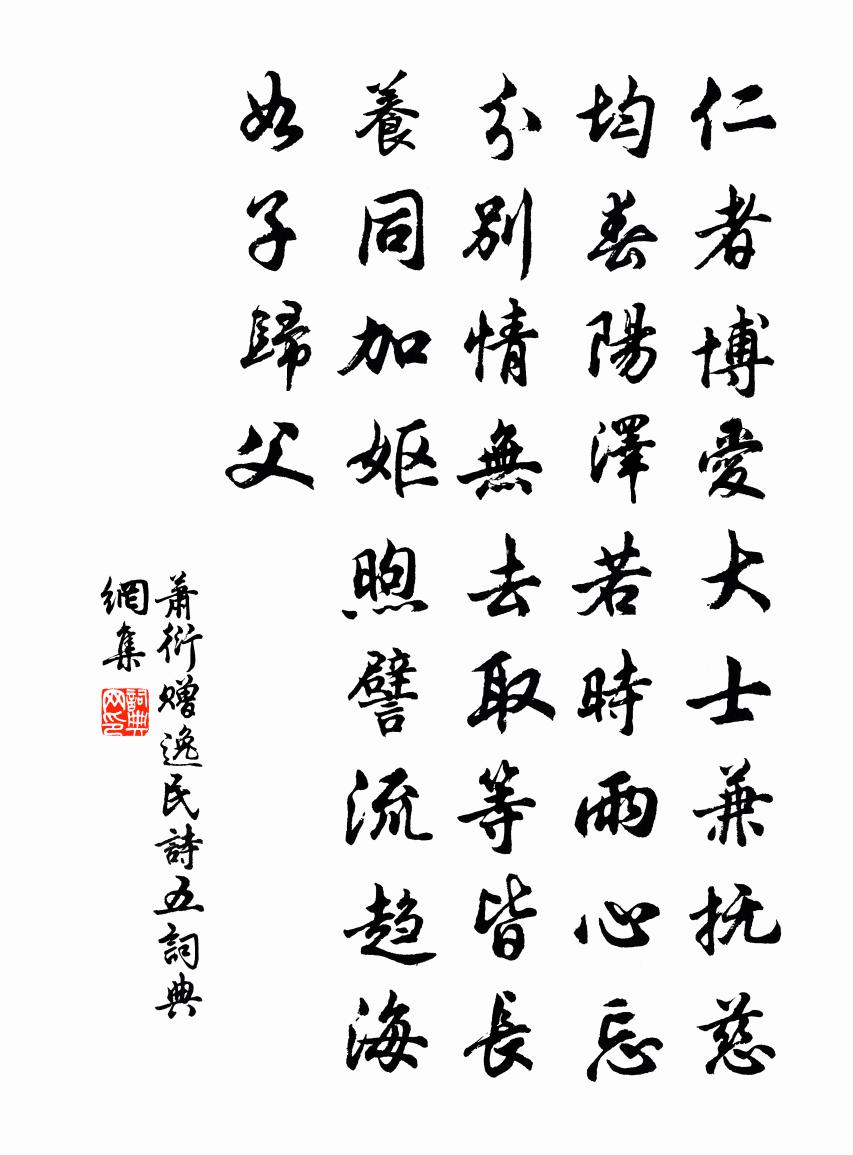 仁者博愛大士兼抚慈
均春陽澤若時雨心忘
分別情無去取等皆長
養同加嫗煦譬流趋海
如子歸父
蕭衍贈逸民詩五詞典
網集
詞典
网印